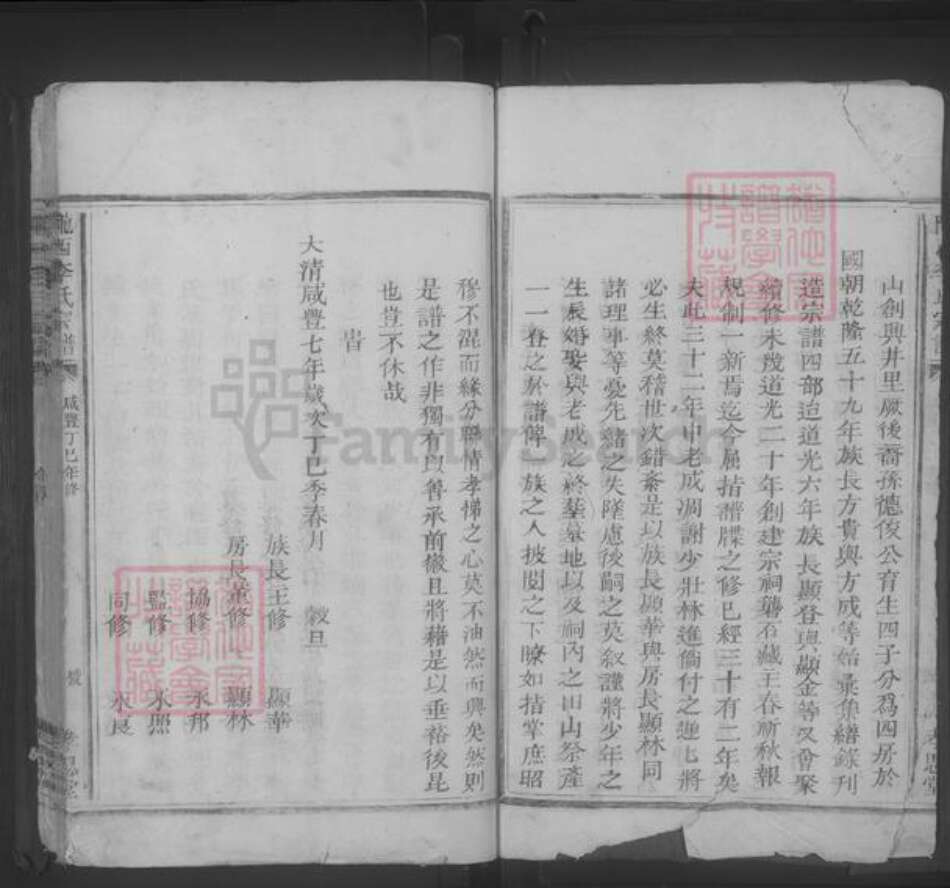 山創興井里厥後裔孫德俊公育生四子分爲四房於
國朝乾隆五十九年族長方貴與方成等始彙集繕錄刊
造宗譜四部迨道光六年族長顯登與顯金等又會聚
續修未幾道光二十年創建宗祠龔石藏王春祈秋報
規制一新焉迄今屈指譜牒之修已經三十有二年矣
夫此三十二年中老成凋謝少壯林進倘付之迤匕將
必生終莫稽世次錯紊是以族長顯華與房長顯林同
諸理事等憂先緒之失墜慮後嗣之莫叙謹將少年之
生辰婚娶與老成之終塟墓地以及祠內之田山祭產
一一登之於譜俾一族之人披閱之下瞭如指掌庶昭
穆不混而緣分聯情孝悌之心莫不油然而興矣然則
是譜之作非獨有以善承前徽且將藉是以垂裕後昆
也豈不休哉
旹
大清咸豐七年歲次丁巳季春月 穀旦
族長主修 顯華
房長董修 顯林
協修 永邦
監修 永照
同修 永長
隴西李氏宗譜 咸豐丁巳年修
FamilySearch